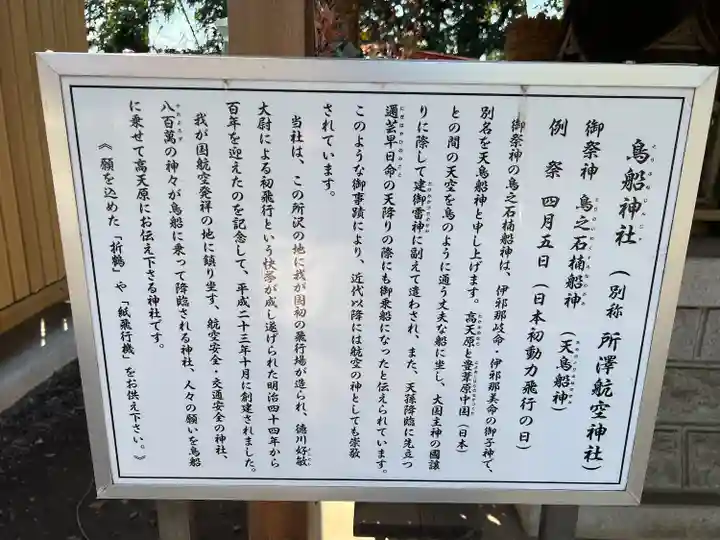 鳥船神社（別称 所澤航空神社）
御祭神 鳥之石楠船神（天鳥船神）
例祭 四月五日（日本初動力飛行の日）
御祭神の鳥之石楠船神は、伊邪那岐命・伊邪那美命の御子神で、
別名を天鳥船神と申し上げます。高天原と豊葦原中国（日本）
との間の天空を鳥のように通う丈夫な船に坐し、大国主神の国譲
りに際して建御雷神に副えて遣わされ、また、天孫降臨に先立つ
邇芸早日命の天降りの際にも御乗船になったと伝えられています。
このような御事蹟により、近代以降には航空の神としても崇敬
されています。
当社は、この所沢の地に我が国初の飛行場が造られ、徳川好敏
大尉による初飛行という快挙が成し遂げられた明治四十四年から
百年を迎えたのを記念して、平成二十三年十月に創建されました。
我が国航空発祥の地に鎮り坐す、航空安全・交通安全の神社、
八百萬の神々が鳥船に乗って降臨される神社、人々の願いを鳥船
に乗せて高天原にお伝え下さる神社です。
《願を込めた「折鶴」や「紙飛行機」をお供え下さい。》